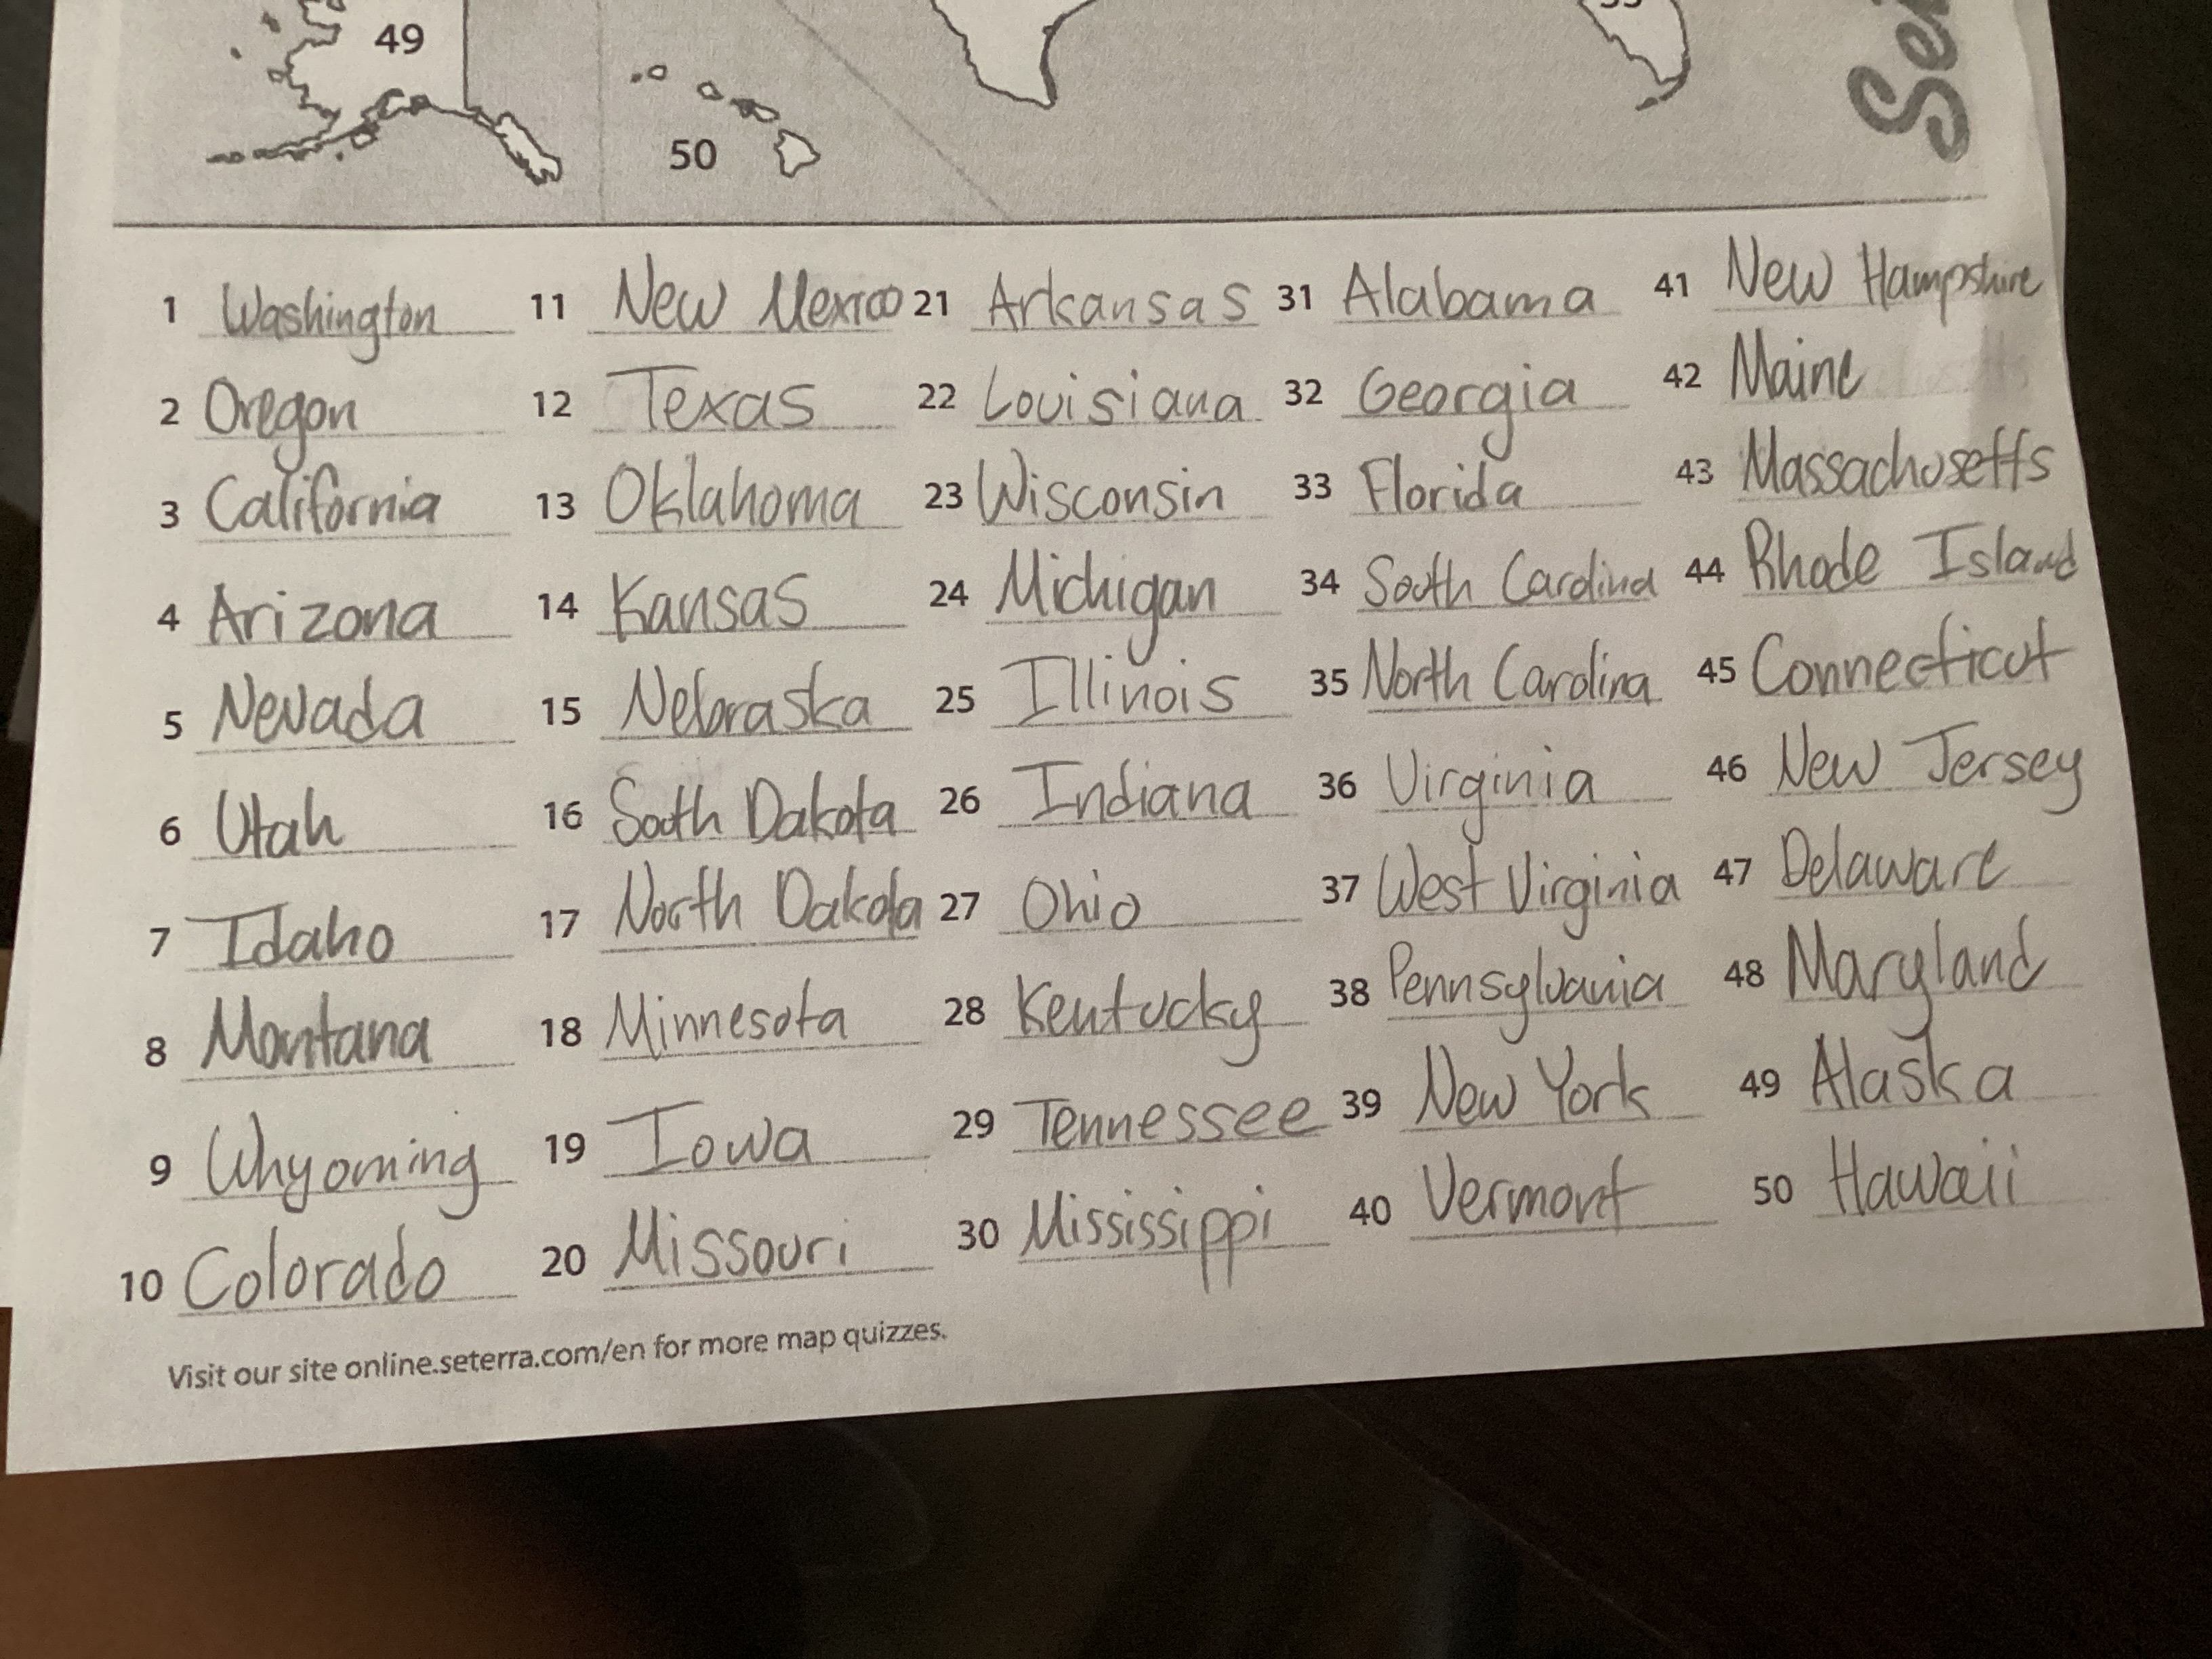 49
50
1 Washington 11 New Mexico 21 Arkansas 31 Alabama 41 New Hampshire
2 Oregon 12 Texas 22 Louisiana 32 Georgia 42 Maine
3 California 13 Oklahoma 23 Wisconsin 33 Florida 43 Massachusetts
4 Arizona 14 Kansas 24 Michigan 34 South Carolina 44 Rhode Island
5 Nevada 15 Nebraska 25 Illinois 35 North Carolina 45 Connecticut
6 Utah 16 South Dakota 26 Indiana 36 Virginia 46 New Jersey
7 Idaho 17 North Dakota 27 Ohio 37 West Virginia 47 Delaware
8 Montana 18 Minnesota 28 Kentucky 38 Pennsylvania 48 Maryland
9 Whyoming 19 Iowa 29 Tennessee 39 New York 49 Alaska
10 Colorado 20 Missouri 30 Mississippi 40 Vermont 50 Hawaii
Visit our site online.seterra.com/en for more map quizzes.